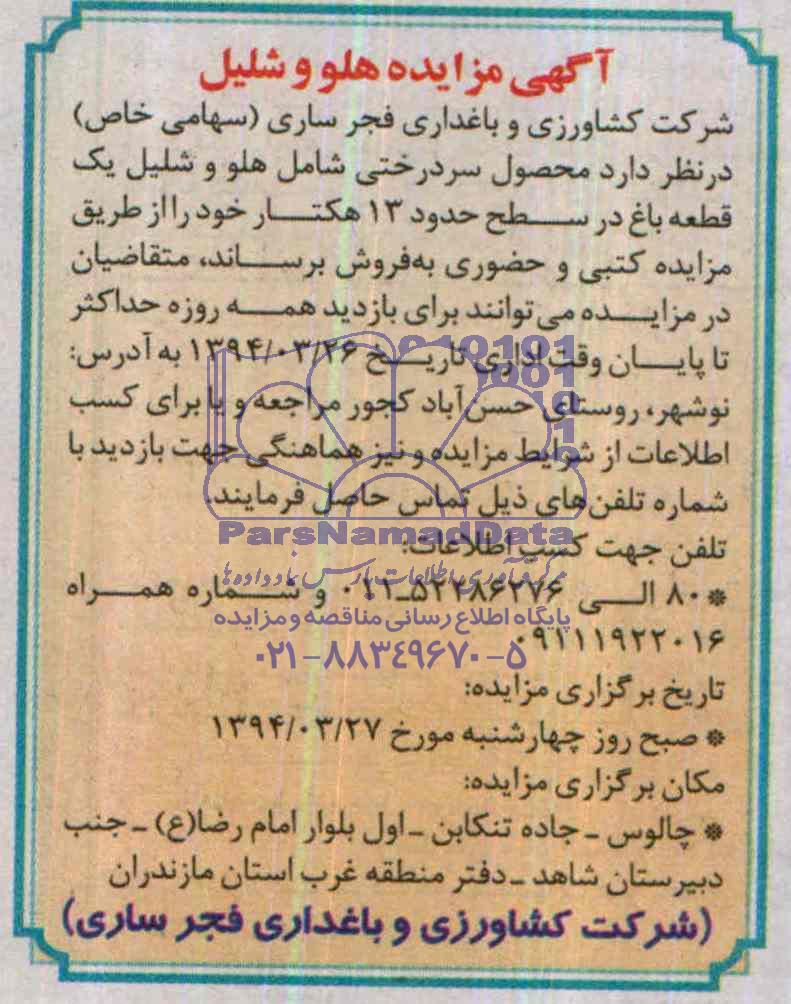 آگهی مزایده هلو و شلیل
شرکت کشاورزی و باغداری فجر ساری (سهامی خاص)
درنظر دارد محصول سردرختی شامل هلو و شلیل یک
قطعه باغ در سطح حدود ۱۳ هکتار خود را از طریق
مزایده کتبی و حضوری به‌فروش برساند، متقاضیان
در مزایده می‌توانند برای بازدید همه روزه حداکثر
تا پایان وقت اداری تاریخ ۱۳۹۴/۰۳/۲۶ به آدرس:
نوشهر، روستای حسن‌آباد کجور مراجعه و یا برای کسب
اطلاعات از شرایط مزایده و نیز هماهنگی جهت بازدید با
شماره تلفن‌های ذیل تماس حاصل فرمایند.
ParsNamadData
تلفن جهت کسب اطلاعات:
مرکز فرآوری اطلاعات پارس نماد داده‌ها
* ۸۰ الی ۵۲۲۸۶۲۷۶-۰۱۱ و شماره همراه
پایگاه اطلاع رسانی مناقصه و مزایده
۰۹۱۱۱۹۲۲۰۱۶
۰۲۱-۸۸۳۴۹۶۷۰-۵
تاریخ برگزاری مزایده:
* صبح روز چهارشنبه مورخ ۱۳۹۴/۰۳/۲۷
مکان برگزاری مزایده:
* چالوس - جاده تنکابن - اول بلوار امام رضا(ع) - جنب
دبیرستان شاهد - دفتر منطقه غرب استان مازندران
(شرکت کشاورزی و باغداری فجر ساری)